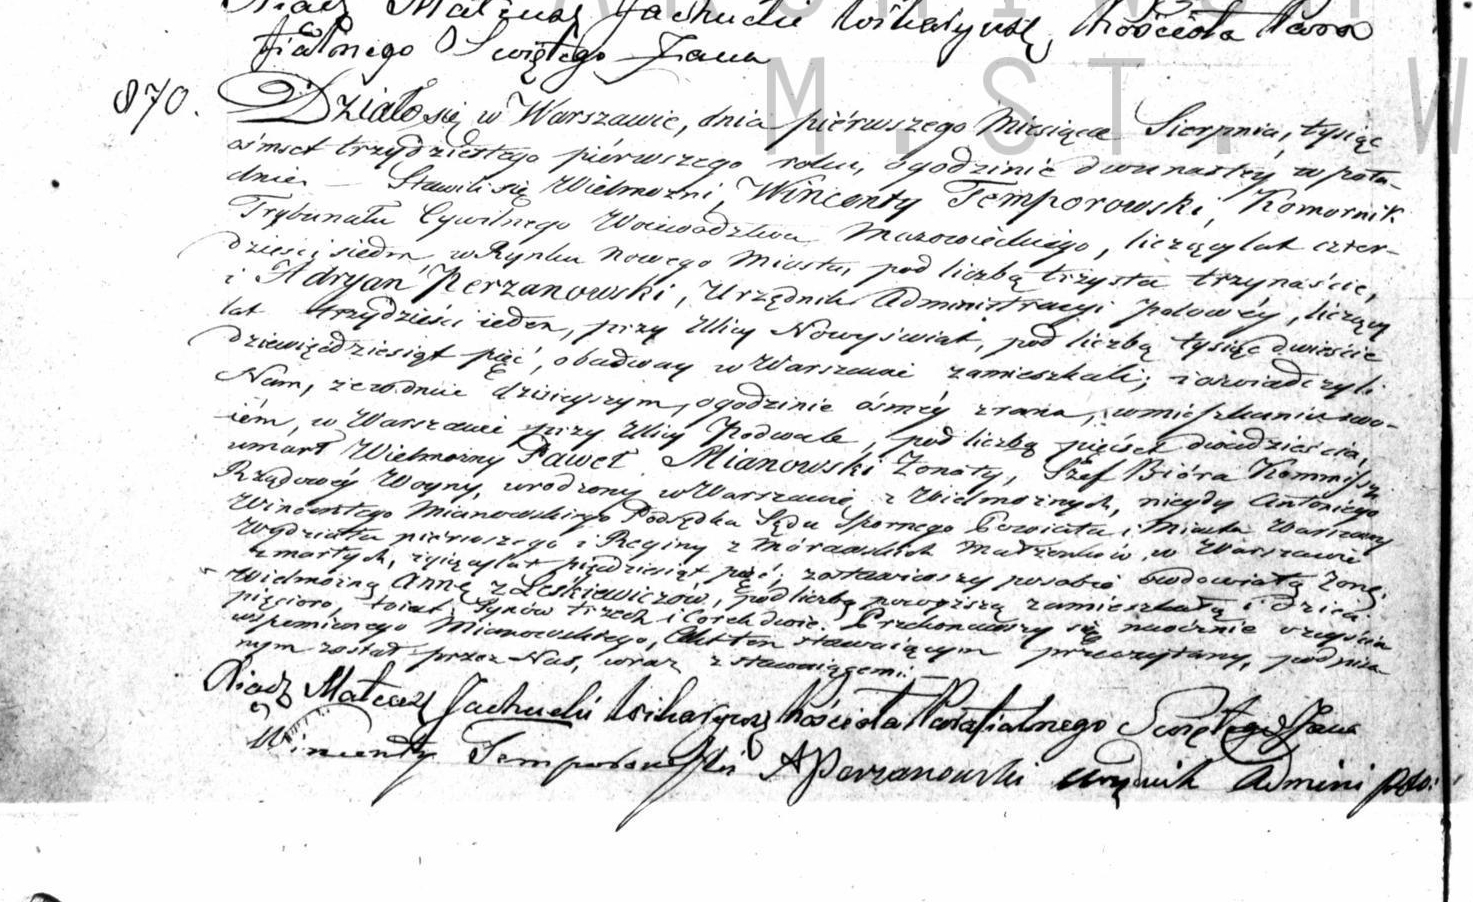 Xiądz Mateusz Jachucki Wikaryusz Kościoła Para
fialnego Świętego Jana
M. ST. W
870. Działo się w Warszawie, dnia piérwszego Miesiąca Sierpnia, tysiąc
ośmset trzydziestego piérwszego roku, o godzinie dwunastéy w połu-
dnie. – Stawili się Wielmożni, Wincenty Temporowski, Komornik
Trybunału Cywilnego Woiewództwa Mazowieckiego, liczący lat czter-
dzieści siedm w Rynku Nowego Miasta, pod liczbą trzysta trzynaście,
i Adryan Perzanowski, Urzędnik Administracyi polowéy, liczący
lat trzydzieści ieden, przy Ulicy Nowyświat, pod liczbą tysiąc dwieście
dziewięćdziesiąt pięć, obadway w Warszawie zamieszkali; i oświadczyli
Nam, że w dniu dzisieyszym, o godzinie ósméy zrana, w mieszkaniu swo-
iém, w Warszawie przy Ulicy Podwale, pod liczbą pięćset dwadzieścia,
umarł Wielmożny Paweł Mianowski Żonaty, Szef Bióra Kommissyi
Rządowéy Woyny, urodzony w Warszawie z Wielmożnych, niegdy Antoniego
Wincentego Mianowskiego Podsędka Sądu Spornego Powiatu i Miasta Warszawy
Wydziału pierwszego i Reginy z Morawskich Małżonków w Warszawie
zmarłych, żyiący lat pięćdziesiąt pięć, zostawiwszy po sobie owdowiałą żonę
Wielmożną Annę z Leskiewiczów, pod liczbą powyższą zamieszkałą i dzieci
pięcioro, to iest, Synów trzech i Córek dwie. Przekonawszy się naocznie o zeyściu
wspomnionego Mianowskiego, Akt ten stawaiącym przeczytany, podpisa-
nym został przez Nas, wraz z stawaiącemi.
Xiądz Mateusz Jachucki Wikaryusz Kościoła Parafialnego Świętego Jana
Wincenty Temporowski A Perzanowski urzędnik Admini polo: